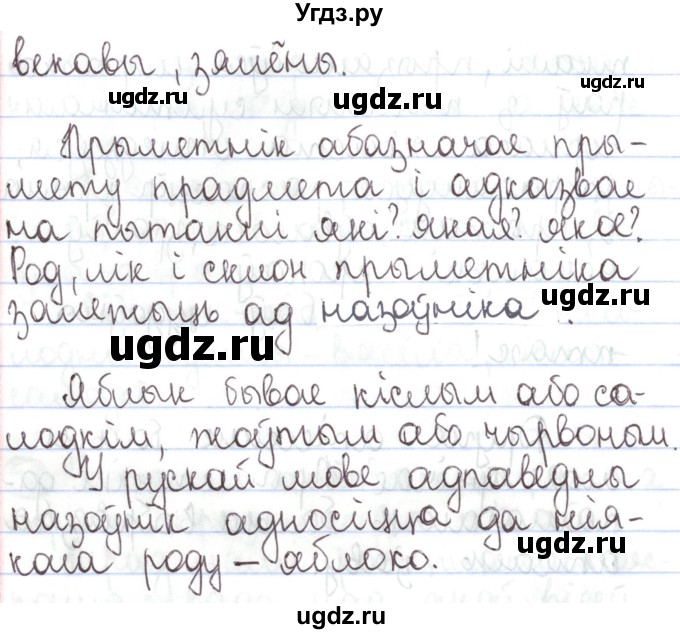 Угдз.ру
векавы, зялёны.
ugdz.ru
ugdz.ru
ugdz.ru
Прыметнік абазначае пры-
мету прадмета і адказвае
на пытанні які? якая? якое?
Род, лік і склон прыметніка
ugdz.ru
залежыць ад назоўніка.
ugdz.ru
Яблык бывае кіслым або са-
лодкім, жоўтым або чырвоным.
У рускай мове адпаведны
назоўнік адносіцца да ния-
кага роду – яблоко.
ugdz.ru
ugdz.ru